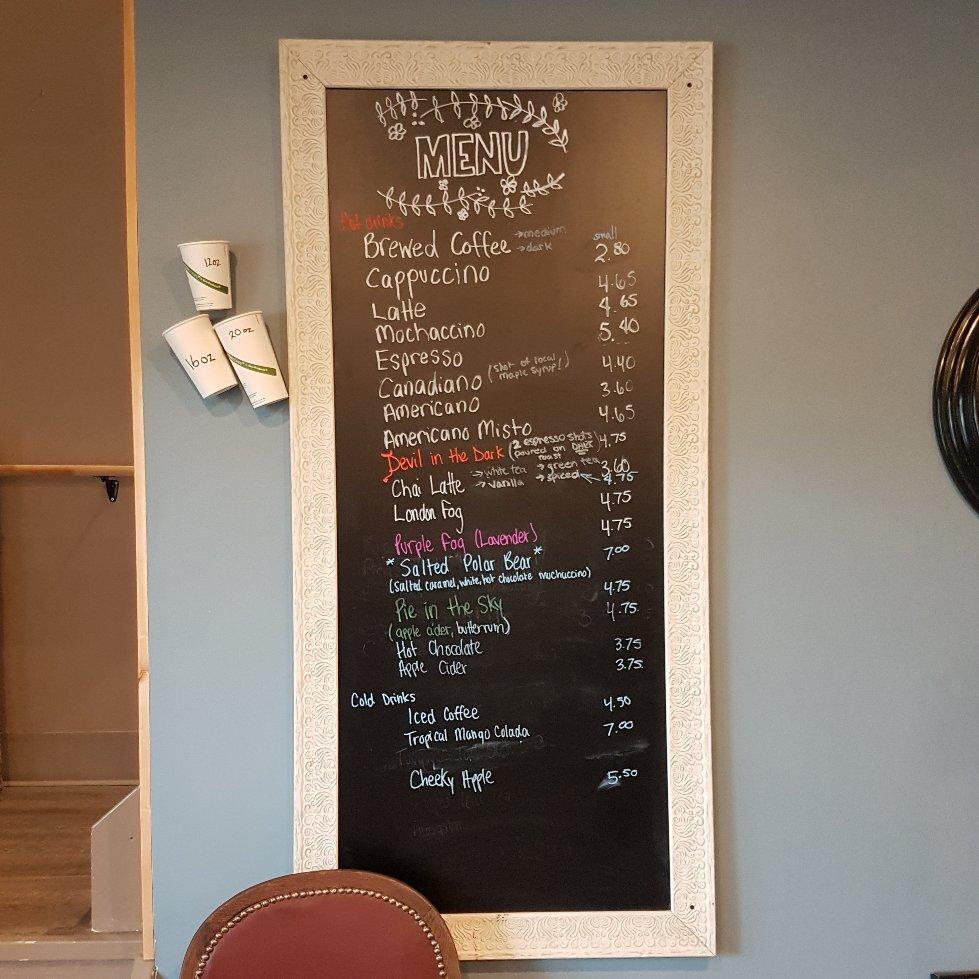 MENU
Hot drinks
Brewed Coffee →medium →dark small 2.80
Cappuccino 4.65
Latte 4.65
Mochaccino 5.40
Espresso 4.40
Canadiano (shot of local maple syrup!) 3.60
Americano 4.65
Americano Misto 4.75
Devil in the Dark (2 espresso shots poured on DARK roast 3.60
Chai Latte →white tea →green tea →vanilla →spiced 4.75
London Fog 4.75
Purple Fog (Lavender) 4.75
*Salted Polar Bear* 7.00
(salted caramel, white, hot chocolate muchuccino) 4.75
Pie in the Sky 4.75
(apple cider, butterrum)
Hot Chocolate 3.75
Apple Cider 3.75
Cold Drinks
Iced Coffee 4.50
Tropical Mango Colada 7.00
Cheeky Apple 5.50
12oz
16oz
20oz